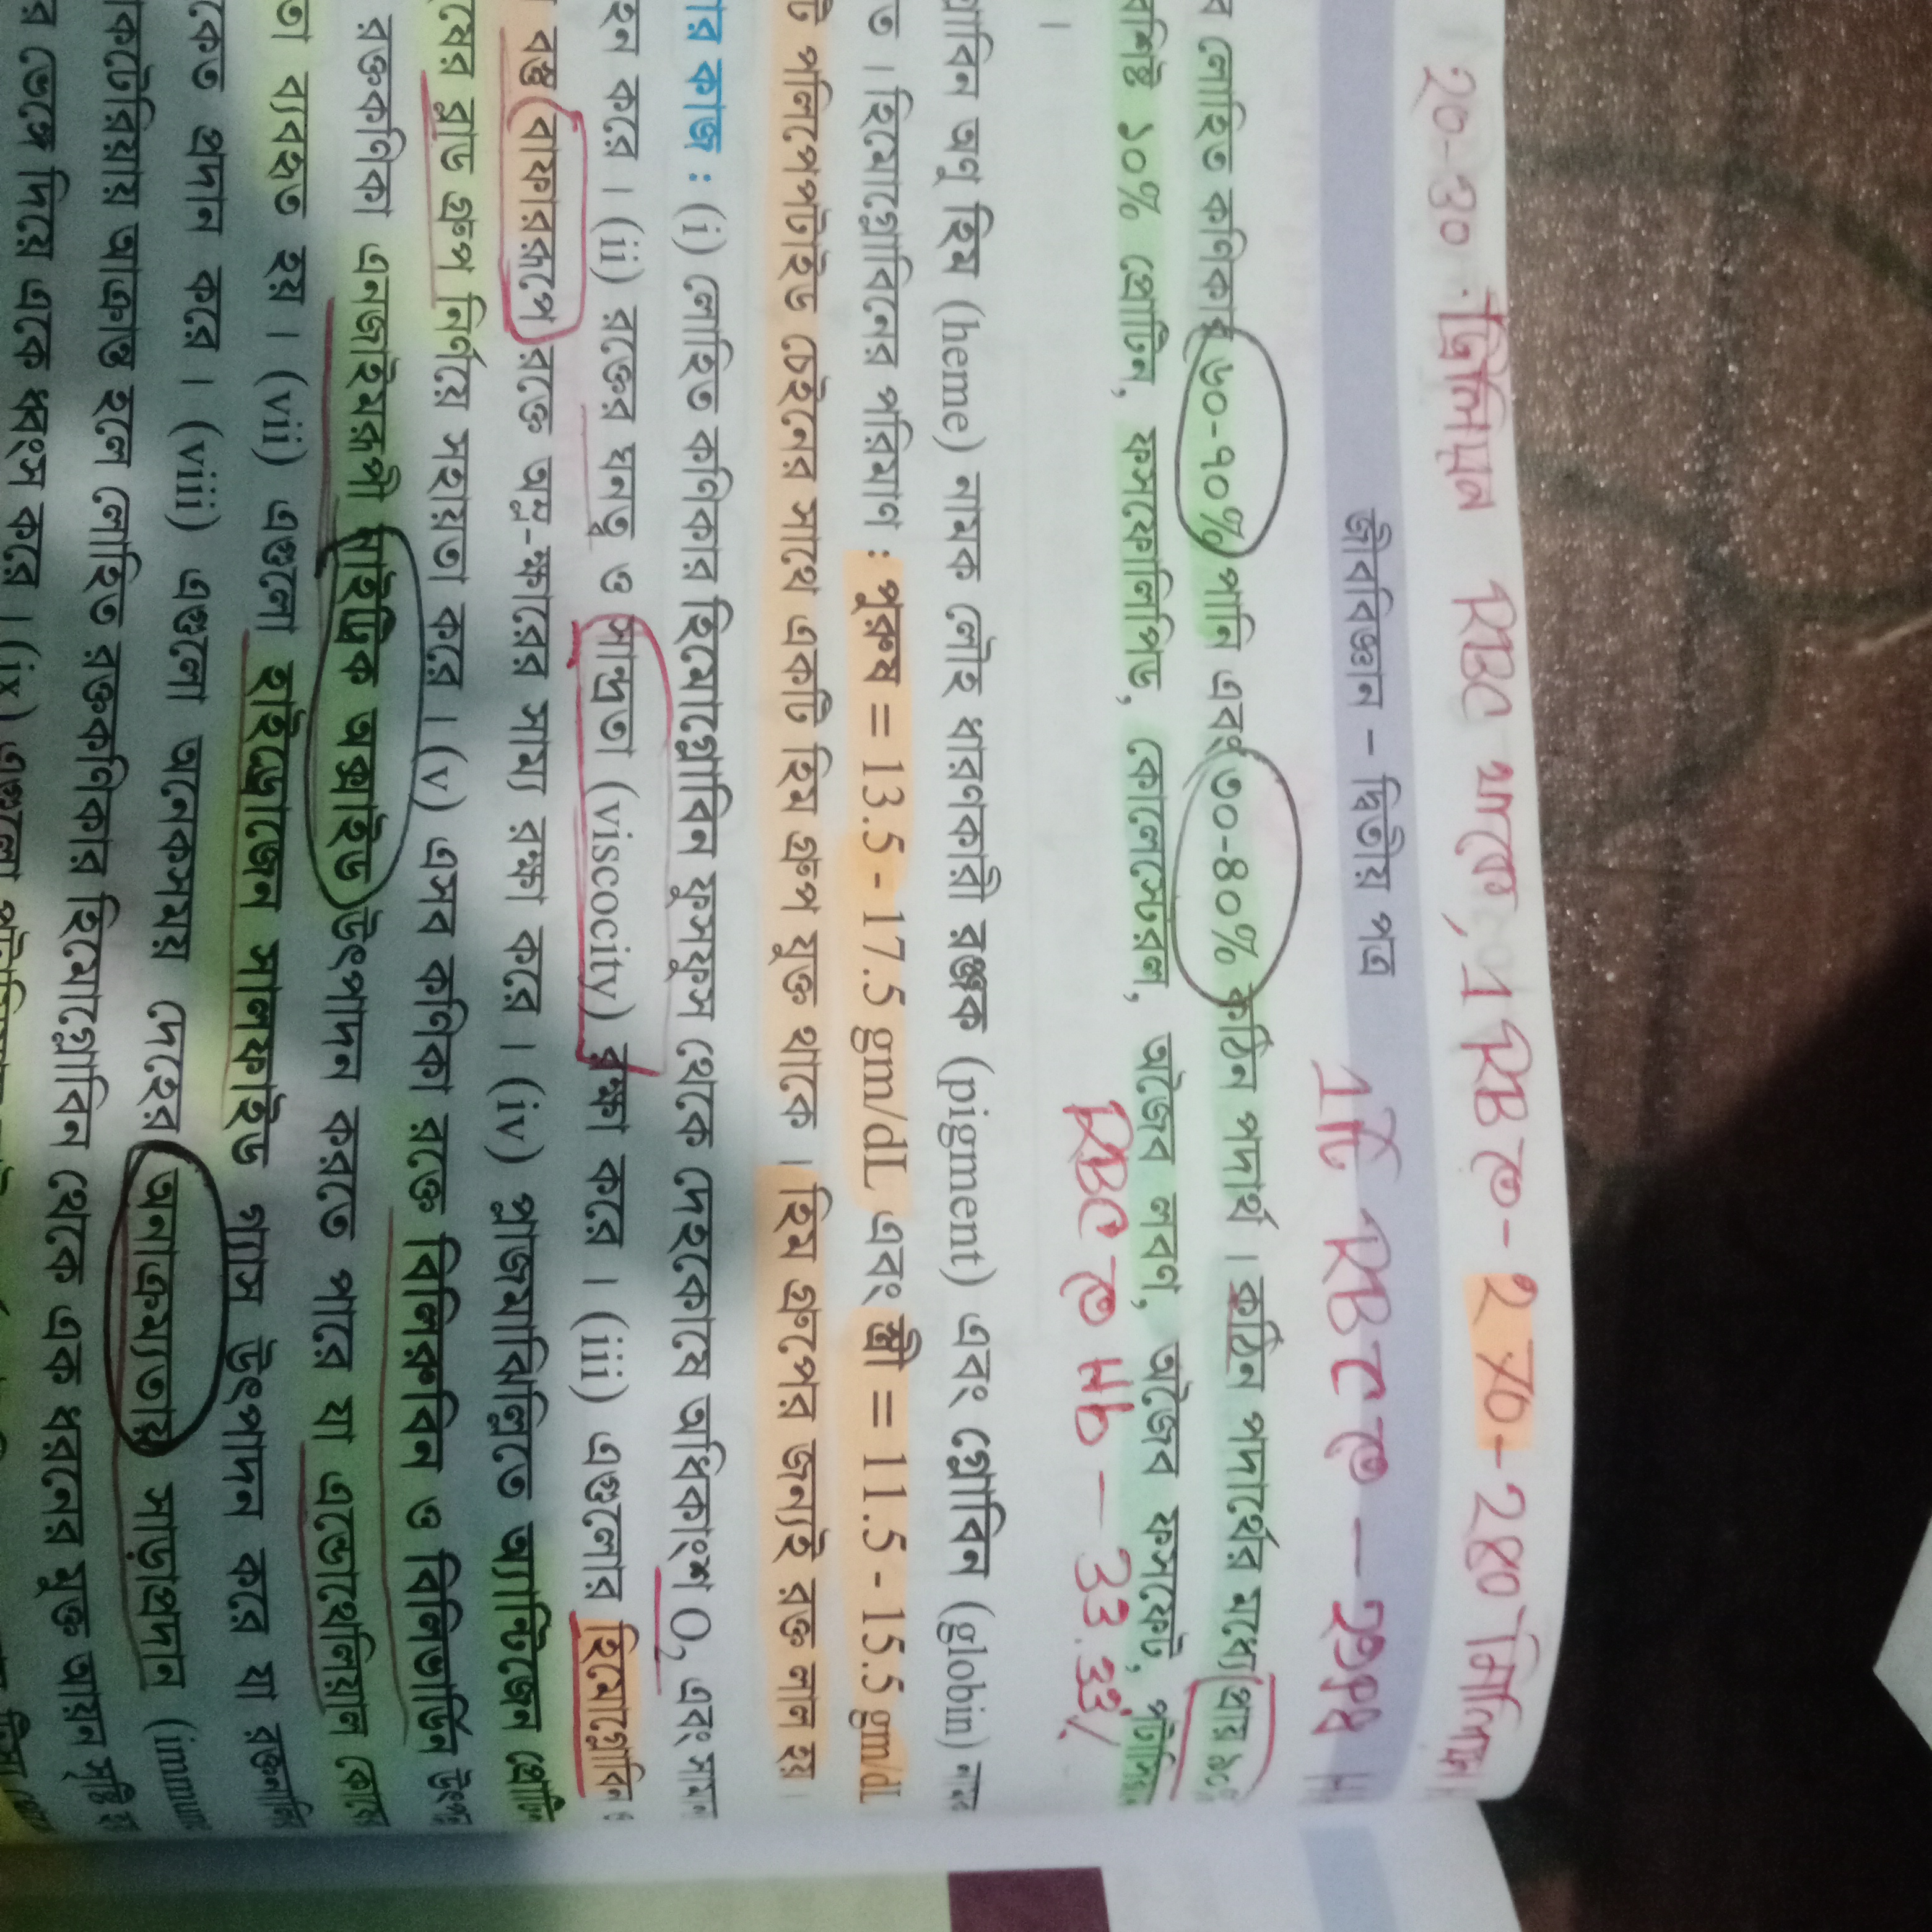 20-30 ট্রিলিয়ন RBC থাকে, 1 RBC তে - 270-280 মিলিয়ন
জীববিজ্ঞান – দ্বিতীয় পত্র
1টি RBC তে — 29pg H
লোহিত কণিকায় ৬০-৭০% পানি এবং ৩০-৪০% কঠিন পদার্থ। কঠিন পদার্থের মধ্যে প্রায় ৯০%
বশিষ্ট ১০% প্রোটিন, ফসফোলিপিড, কোলেস্টেরল, অজৈব লবণ, অজৈব ফসফেট, পটাসিয়া
। RBC তে Hb — 33.33%
গ্লোবিন অণু হিম (heme) নামক লৌহ ধারণকারী রঞ্জক (pigment) এবং গ্লোবিন (globin) নাম
ত। হিমোগ্লোবিনের পরিমাণ : পুরুষ = 13.5 - 17.5 gm/dL এবং স্ত্রী = 11.5 - 15.5 gm/dL
টি পলিপেপটাইড চেইনের সাথে একটি হিম গ্রুপ যুক্ত থাকে। হিম গ্রুপের জন্যই রক্ত লাল হয়।
ার কাজ : (i) লোহিত কণিকার হিমোগ্লোবিন ফুসফুস থেকে দেহকোষে অধিকাংশ O₂ এবং সামান
হন করে। (ii) রক্তের ঘনত্ব ও সান্দ্রতা (viscocity) রক্ষা করে। (iii) এগুলোর হিমোগ্লোবিন ও
বস্তু বাফাররূপে রক্তে অম্ল-ক্ষারের সাম্য রক্ষা করে। (iv) প্লাজমামেমব্রেনে অ্যান্টিজেন প্রোটি
ষের ব্লাড গ্রুপ নির্ণয়ে সহায়তা করে। (v) এসব কণিকা রক্তে বিলিরুবিন ও বিলিভার্ডিন উৎপা
রক্তকণিকা এনজাইমরূপী নাইট্রিক অক্সাইড উৎপাদন করতে পারে যা এন্ডোথেলিয়াল কোষে
তা ব্যবহৃত হয়। (vii) এগুলো হাইড্রোজেন সালফাইড গ্যাস উৎপাদন করে যা রক্তনালি
কেত প্রদান করে। (viii) এগুলো অনেকসময় দেহের অনাক্রম্যতায় সাড়াপ্রদান (immun
াকটেরিয়ায় আক্রান্ত হলে লোহিত রক্তকণিকার হিমোগ্লোবিন থেকে এক ধরনের মুক্ত আয়ন সৃষ্টি হয়
র ভেঙ্গে দিয়ে একে ধ্বংস করে। (ix) এগুলো